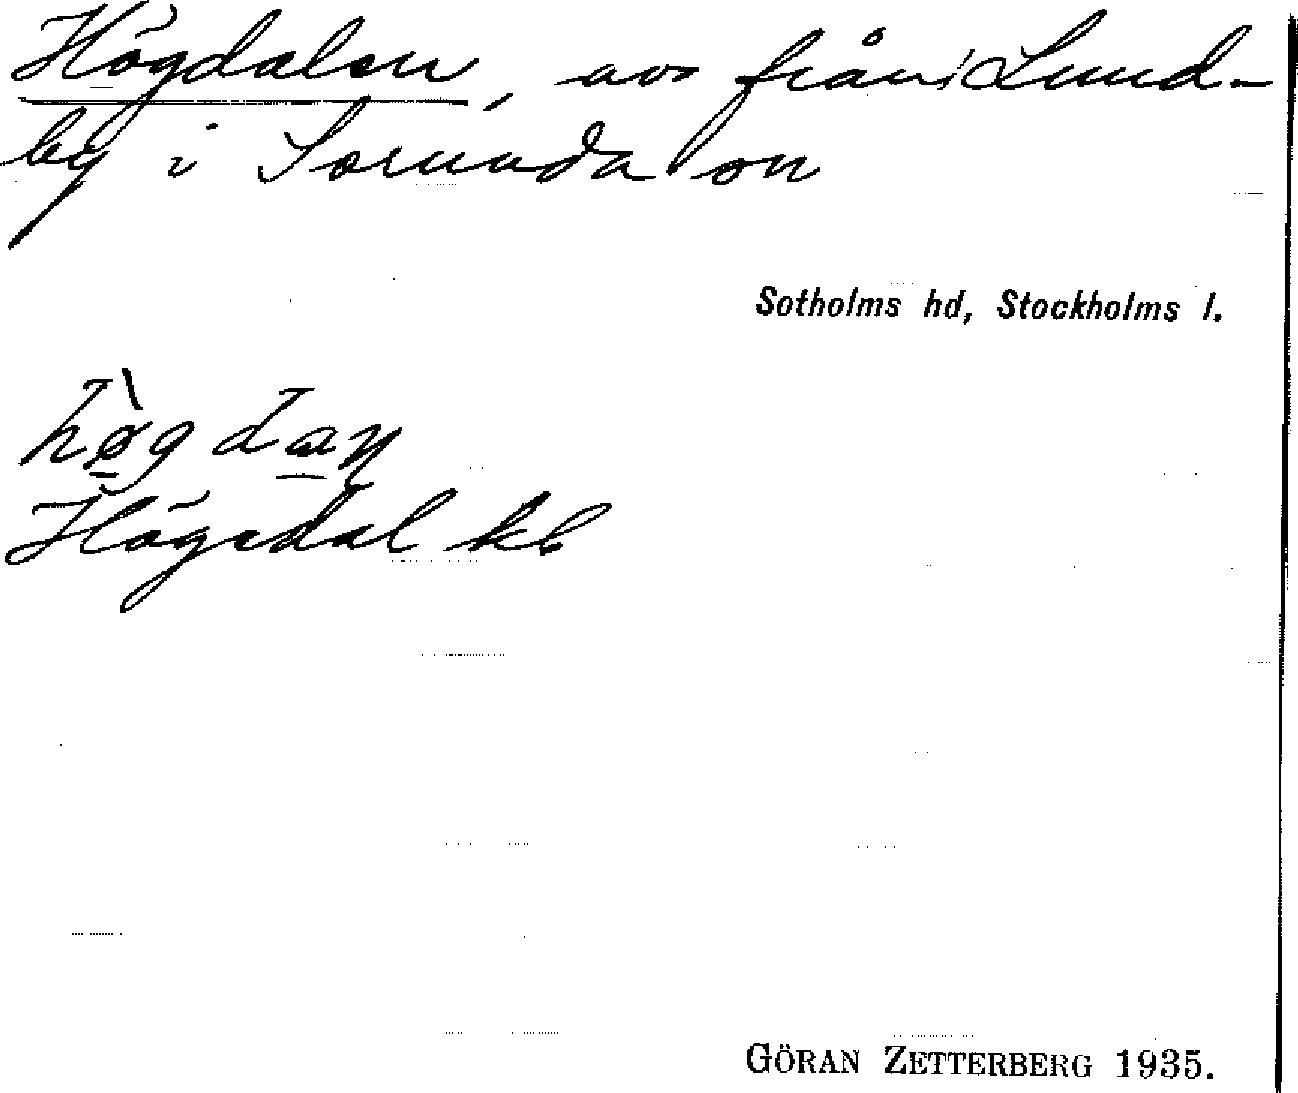 Högdalen, avs från Lund-
by i Sorunda sn
Sotholms hd, Stockholms l.
hø̀gdaɳ
Högsdal kb
GÖRAN ZETTERBERG 1935.